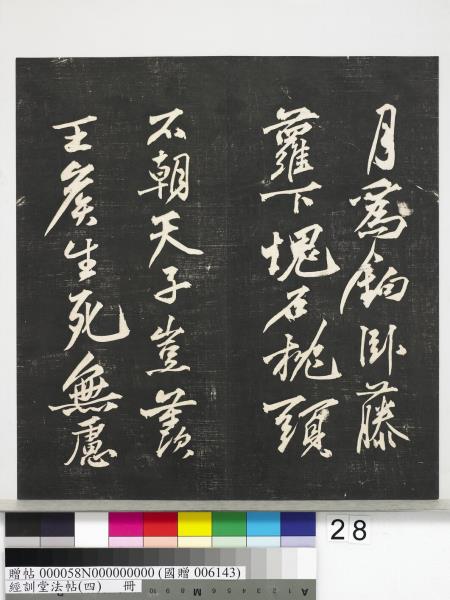 月為鉤臥藤
蘿下塊石枕頭
不朝天子豈羨
王侯生死無慮
28
贈帖 000058N000000000 (國贈 006143)
經訓堂法帖(四) 冊